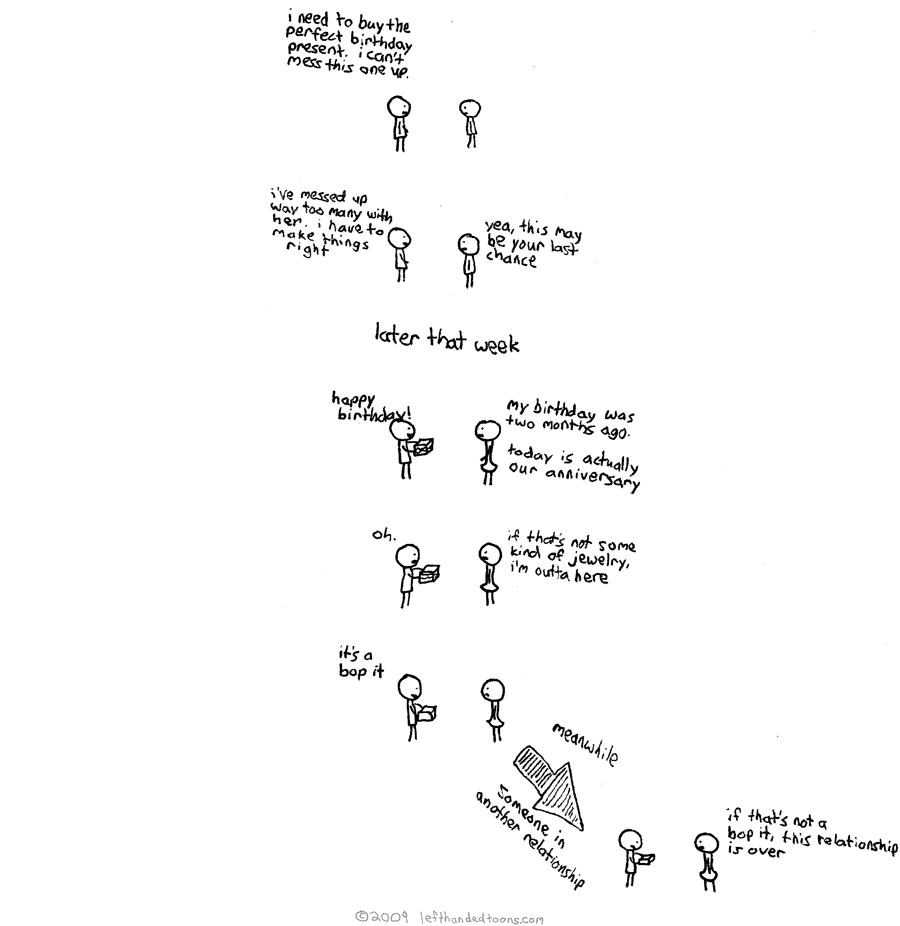 i need to buy the
perfect birthday
present. i can't
mess this one up.
i've messed up
way too many with
her. i have to
make things
right
yea, this may
be your last
chance
later that week
happy
birthday!
my birthday was
two months ago.
today is actually
our anniversary
oh.
if that's not some
kind of jewelry,
i'm outta here
it's a
bop it
meanwhile
someone in
another relationship
if that's not a
bop it, this relationship
is over
©2009 lefthandedtoons.com